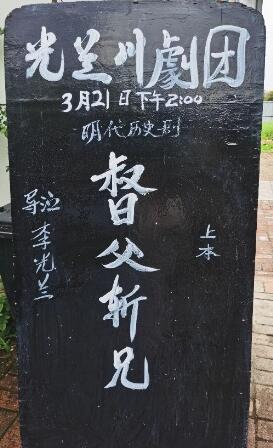 光兰川劇团
3月21日下午2:00
明代历史剧
上本
督父斩兄
导演 李光兰